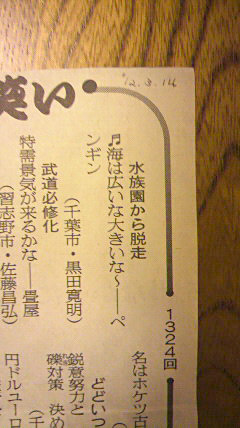 '12.3.14
笑い
1324回
水族園から脱走
♬海は広いな大きいな〜――ペ
ンギン
(千葉市・黒田寛明)
武道必修化
特需景気が来るかな――畳屋
(習志野市・佐藤昌弘)
名はホケツ古
(
どどいつ
鋭意努力と
礫対策 決め
(千
円ドルユーロ